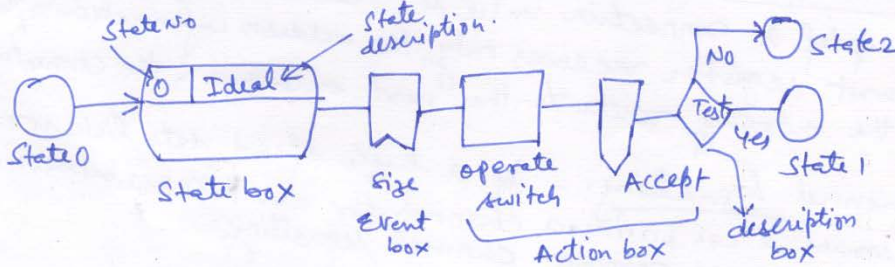 State No
State
description.
0 Ideal
State 0
State box
size
Event
box
operate
switch
Accept
Action box
Test
No
State 2
Yes
State 1
description
box